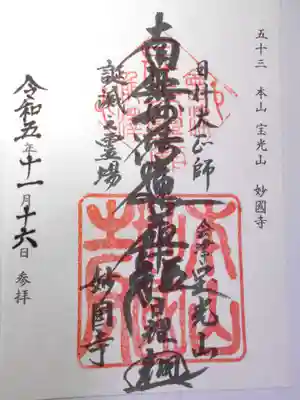 五十三 本山 宝光山 妙國寺
日什大正師
会津宝光山
南無妙法蓮華経
誕滅之霊場
妙国寺
令和五年十一月十六日 参拝